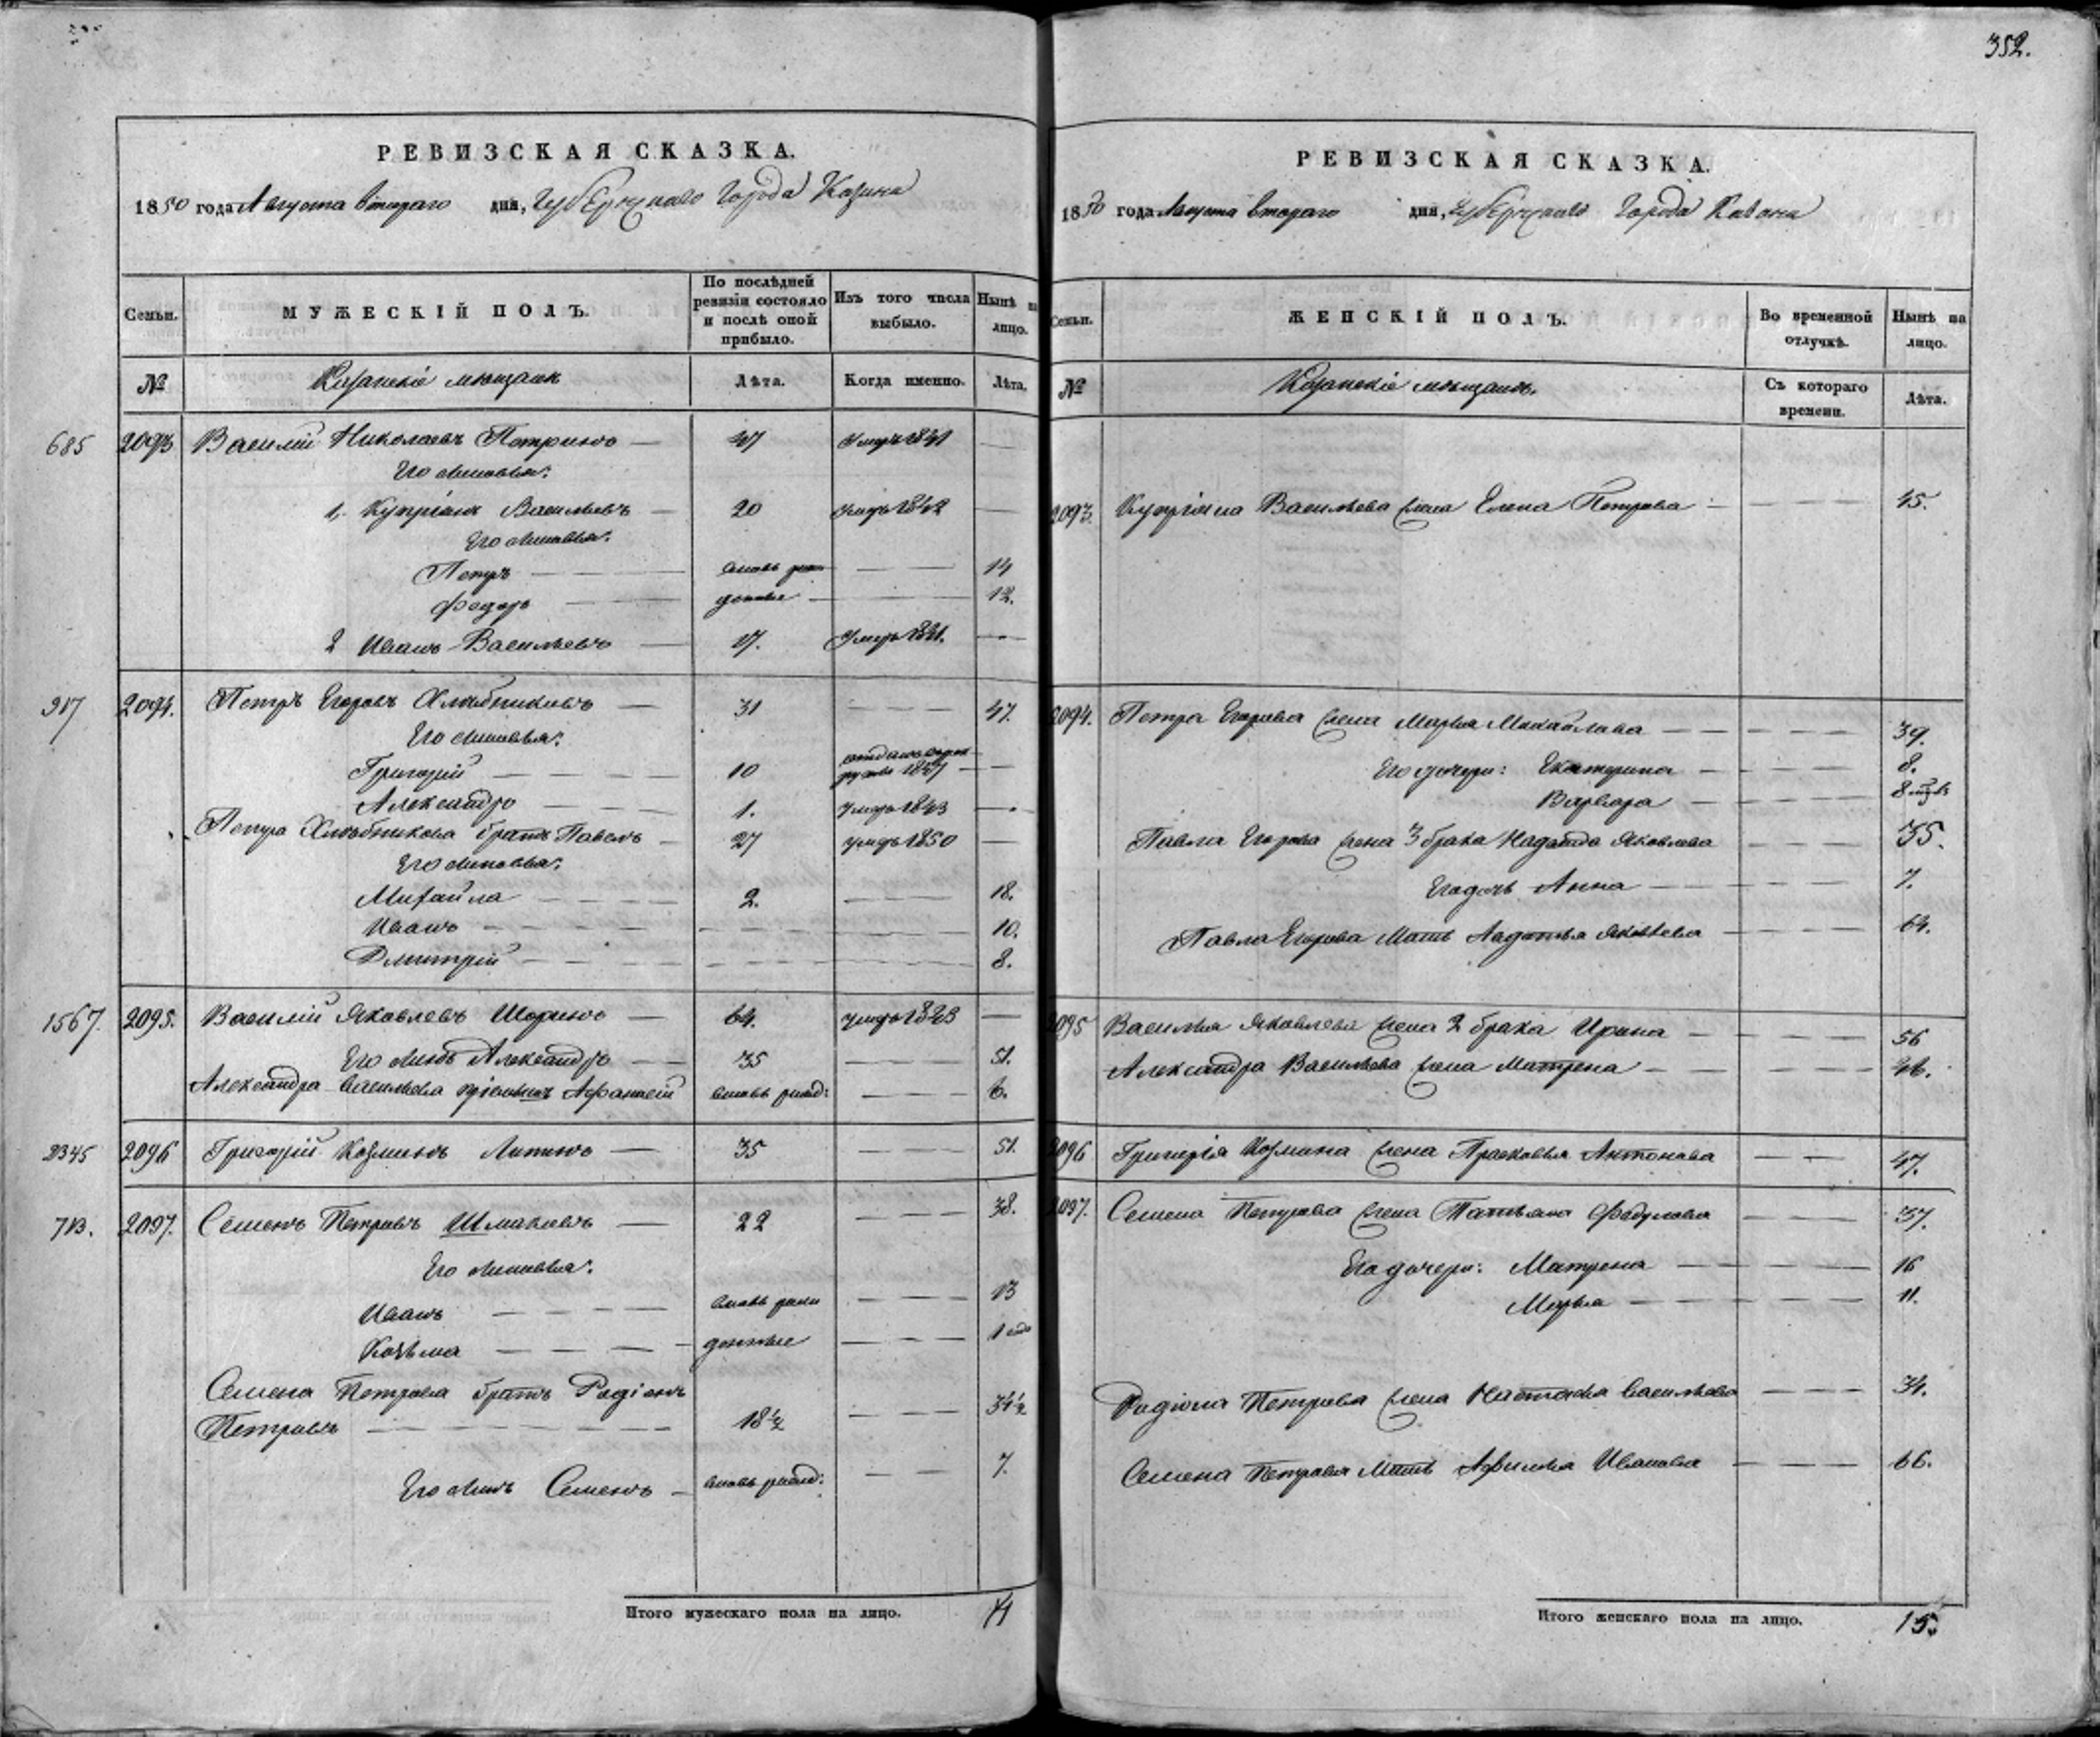 352.
РЕВИЗСКАЯ СКАЗКА.
1850 года Августа втораго дня, Губернскаго Города Казани
Семьи. МУЖЕСКІЙ ПОЛЪ. По послѣдней ревизіи состояло и послѣ оной прибыло. Изъ того числа выбыло. Нынѣ на лицо.
№ Казанскіе мѣщане Лѣта. Когда именно. Лѣта.
685 2093 Василій Николаевъ — 47 умеръ 1841 —
Его сыновья:
1, Купріянъ Васильевъ — 20 умеръ 1842 —
Его сыновья:
Петръ — вновь рож — 14
Федоръ — денные — 12.
2 Иванъ Васильевъ — 17. умеръ —
917 2094. Петръ Егоровъ Хлѣбниковъ — 31 — 47.
Его сыновья:
Григорій — 10 1847 —
Александръ — 1. умеръ 1843 —
Петра Хлѣбникова братъ Павелъ — 27 умеръ 1850 —
Его сыновья:
Михайла — 2. — 18.
Иванъ — 10.
Дмитрій — 8.
1567. 2095. Василій Яковлевъ Шоринъ — 64. умеръ 1843 —
Его сынъ Александръ — 35 — 51.
Александра Васильева Афанасій вновь рожд: — 6.
2345 2096 Григорій Козминъ — 35 — 51.
713. 2097. Семенъ Петровъ Шмаковъ — 22 — 38.
Его сыновья:
Иванъ — вновь рож — 13
Козьма — денные — 1
Семена Петрова братъ Родіонъ
Петровъ — 18½ — 34½
Его сынъ Семенъ — вновь рожд: — 7.
Итого мужескаго пола на лицо. 11
РЕВИЗСКАЯ СКАЗКА.
1850 года Августа втораго дня, Губернскаго Города Казани
Семьи. ЖЕНСКІЙ ПОЛЪ. Во временной отлучкѣ. Нынѣ на лицо.
№ Казанскіе мѣщане. Съ котораго времени. Лѣта.
2093. Купріяна Васильева жена Елена Петрова — 45.
2094. Петра Егорова жена Марья Михайлова — 39.
Его дочери: Екатерина — 8.
Варвара — 8 мѣс
Павла Егорова жена 3 брака Надежда Яковлева — 35.
Его дочь Анна — 7.
Павла Егорова мать Авдотья Яковлева — 64.
2095 Василья Яковлева жена 2 брака Ирина — 56
Александра Васильева жена Матрена — 46.
2096 Григорія Козмина жена Прасковья Антонова — 47.
2097. Семена Петрова жена Татьяна Федулова — 37.
Его дочери: Матрена — 16
Марья — 11.
Родіона Петрова жена Настасья Васильева — 34.
Семена Петрова мать Афимья Иванова — 66.
Итого женскаго пола на лицо. 15.